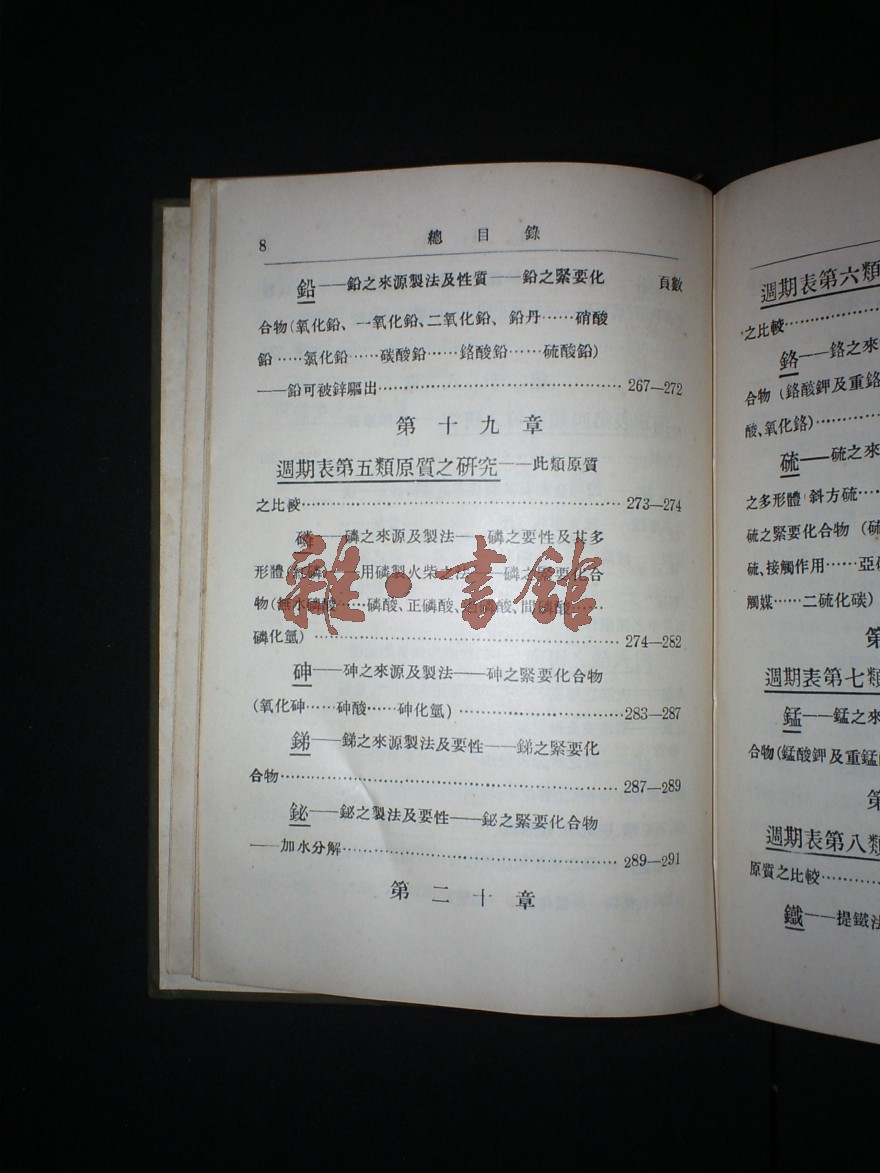 8
總目錄
頁數
鉛——鉛之來源製法及性質——鉛之緊要化
合物(氧化鉛、一氧化鉛、二氧化鉛、鉛丹……硝酸
鉛……氯化鉛……碳酸鉛……鉻酸鉛……硫酸鉛)
——鉛可被鋅驅出……267—272
第十九章
週期表第五類原質之研究——此類原質
之比較……273—274
磷——磷之來源及製法——磷之要性及其多
形體(紅磷)——用磷製火柴之法——磷之緊要化合
物(無水磷酸……磷酸、正磷酸、磷酸、間磷酸……
磷化氫)……274—282
砷——砷之來源及製法——砷之緊要化合物
(氧化砷……砷酸……砷化氫)……283—287
銻——銻之來源製法及要性——銻之緊要化
合物……287—289
鉍——鉍之製法及要性——鉍之緊要化合物
——加水分解……289—291
第二十章
雜·書館
週期表第六類
之比較……
鉻——鉻之來
合物(鉻酸鉀及重鉻
酸、氧化鉻)……
硫——硫之來
之多形體(斜方硫……
硫之緊要化合物(硫
硫、接觸作用……亞
觸媒……二硫化碳)
第
週期表第七類
錳——錳之來
合物(錳酸鉀及重錳
第
週期表第八類
原質之比較……
鐵——提鐵法